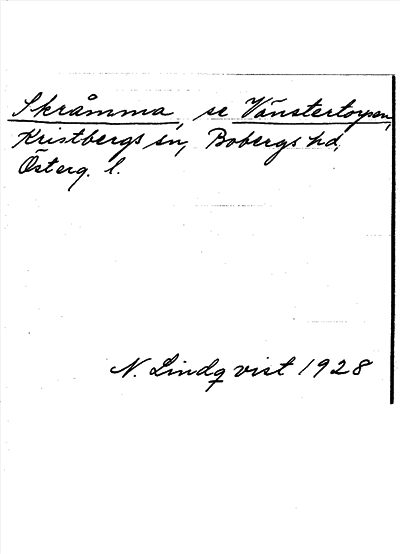 Skråmma, se Vänstertorpen,
Kristbergs sn, Bobergs hd,
Österg. l.
N. Lindqvist 1928